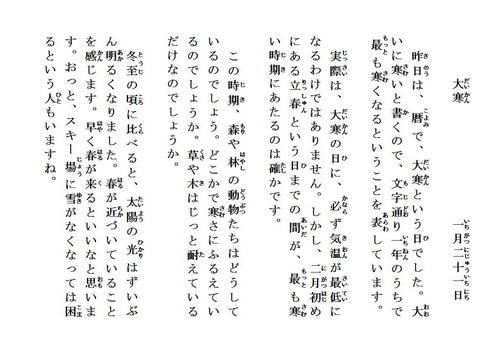 大寒　一月二十一日
昨日は、暦で、大寒という日でした。大
いに寒いと書くので、文字通り一年のうちで
最も寒くなるということを表しています。
実際は、大寒の日に、必ず気温が最低に
なるわけではありません。しかし、二月初め
にある立春という日までの間が、最も寒
い時期にあたるのは確かです。
この時期、森や林の動物たちはどうして
いるのでしょう。どこかで寒さにふるえてい
るのでしょうか。草や木はじっと耐えている
だけなのでしょうか。
冬至の頃に比べると、太陽の光はずいぶ
ん明るくなりました。春が近づいていること
を感じます。早く春が来るといいなと思いま
す。おっと、スキー場に雪がなくなっては困
るという人もいますね。